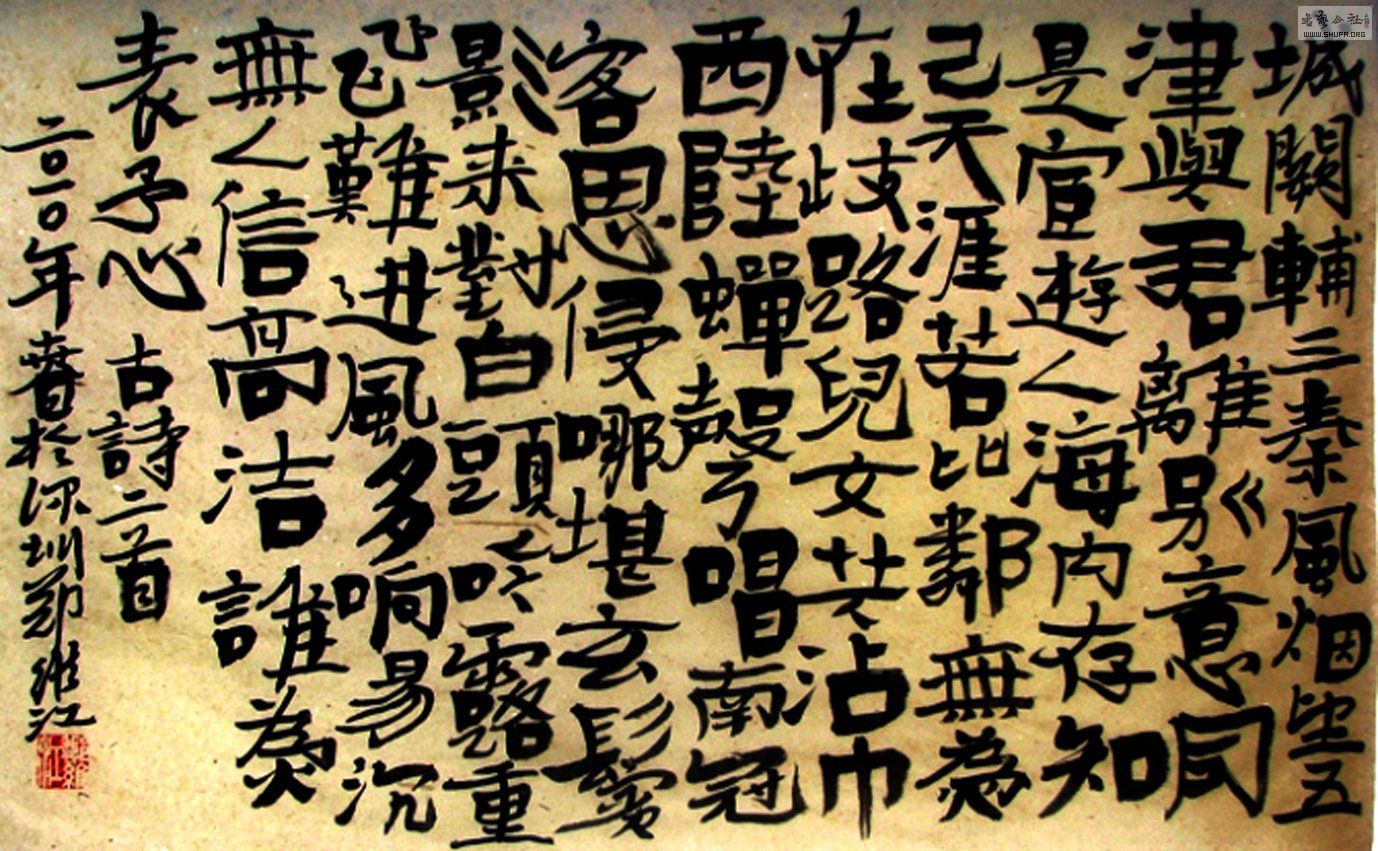 城闕輔三秦風烟望五
津與君離別意同
是宦遊人海内存知
己天涯若比鄰無為
在歧路兒女共沾巾
西陸蟬聲唱南冠
客思侵哪堪玄鬢
影來對白頭吟露重
飛難進風多响易沉
無人信高洁誰為
表予心 古詩二首
二〇一〇年春於深圳郑維江
書藝公社
WWW.SHUFA.ORG